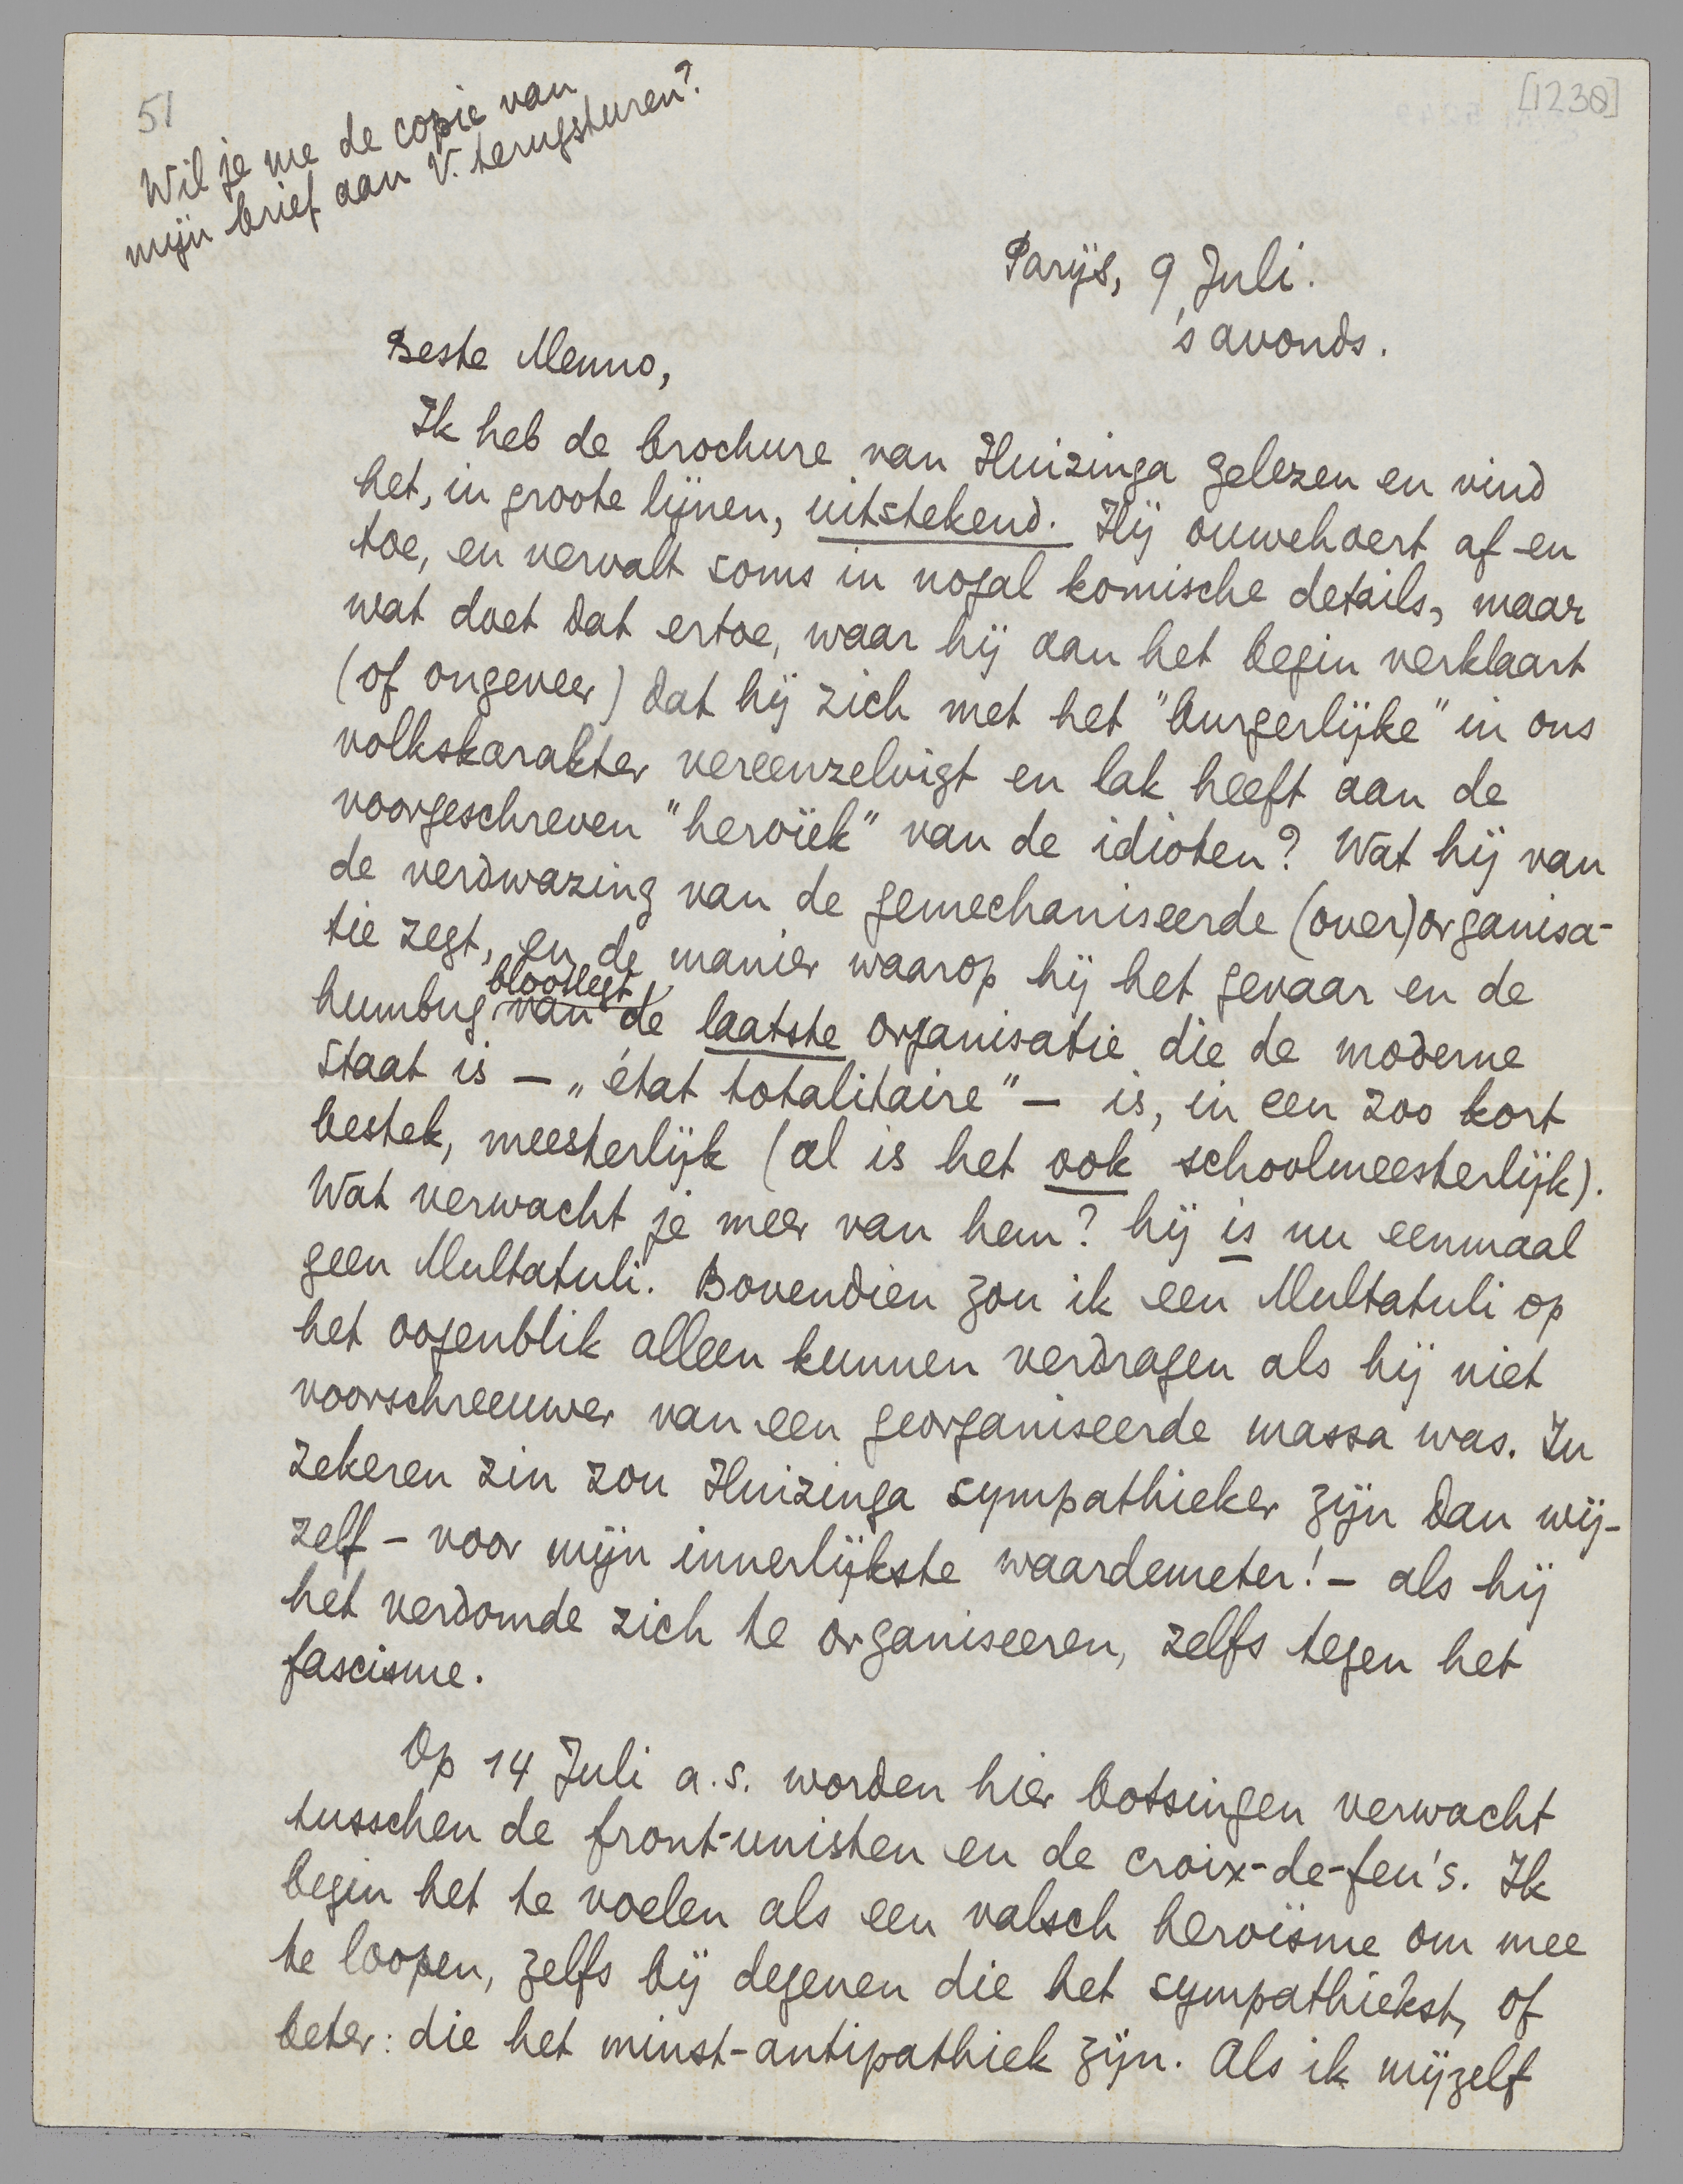 51
[1230]
Wil je me de copie van
mijn brief aan V. terugsturen?
Parijs, 9 Juli.
's avonds.
Beste Menno,
Ik heb de brochure van Huizinga gelezen en vind
het, in groote lijnen, uitstekend. Hij ouwehoert af en
toe, en vervalt soms in nogal komische details, maar
wat doet dat ertoe, waar hij aan het begin verklaart
(of ongeveer) dat hij zich met het "burgerlijke" in ons
volkskarakter vereenzelvigt en lak heeft aan de
voorgeschreven "heroïek" van de idioten? Wat hij van
de verdwazing van de gemechaniseerde (over)organisa-
tie zegt, en de manier waarop hij het gevaar en de
humbug van blootlegt de laatste organisatie die de moderne
Staat is — „état totalitaire" — is, in een zoo kort
bestek, meesterlijk (al is het ook schoolmeesterlijk).
Wat verwacht je meer van hem? hij is nu eenmaal
geen Multatuli. Bovendien zou ik een Multatuli op
het oogenblik alleen kunnen verdragen als hij niet
voorschreeuwer van een georganiseerde massa was. In
zekeren zin zou Huizinga sympathieker zijn dan wij-
zelf – voor mijn innerlijkste waardemeter! – als hij
het verdomde zich te organiseeren, zelfs tegen het
fascisme.
Op 14 Juli a.s. worden hier botsingen verwacht
tusschen de front-unisten en de croix-de-feu's. Ik
begin het te voelen als een valsch heroïsme om mee
te loopen, zelfs bij degenen die het sympathiekst, of
beter: die het minst-antipathiek zijn. Als ik mijzelf